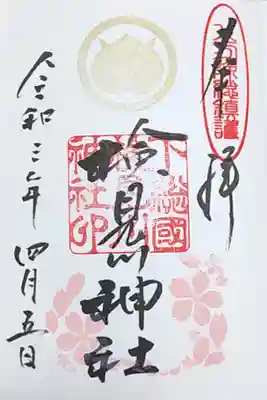 奉拝
検見川神社
下総國
神社印
令和三年
四月五日